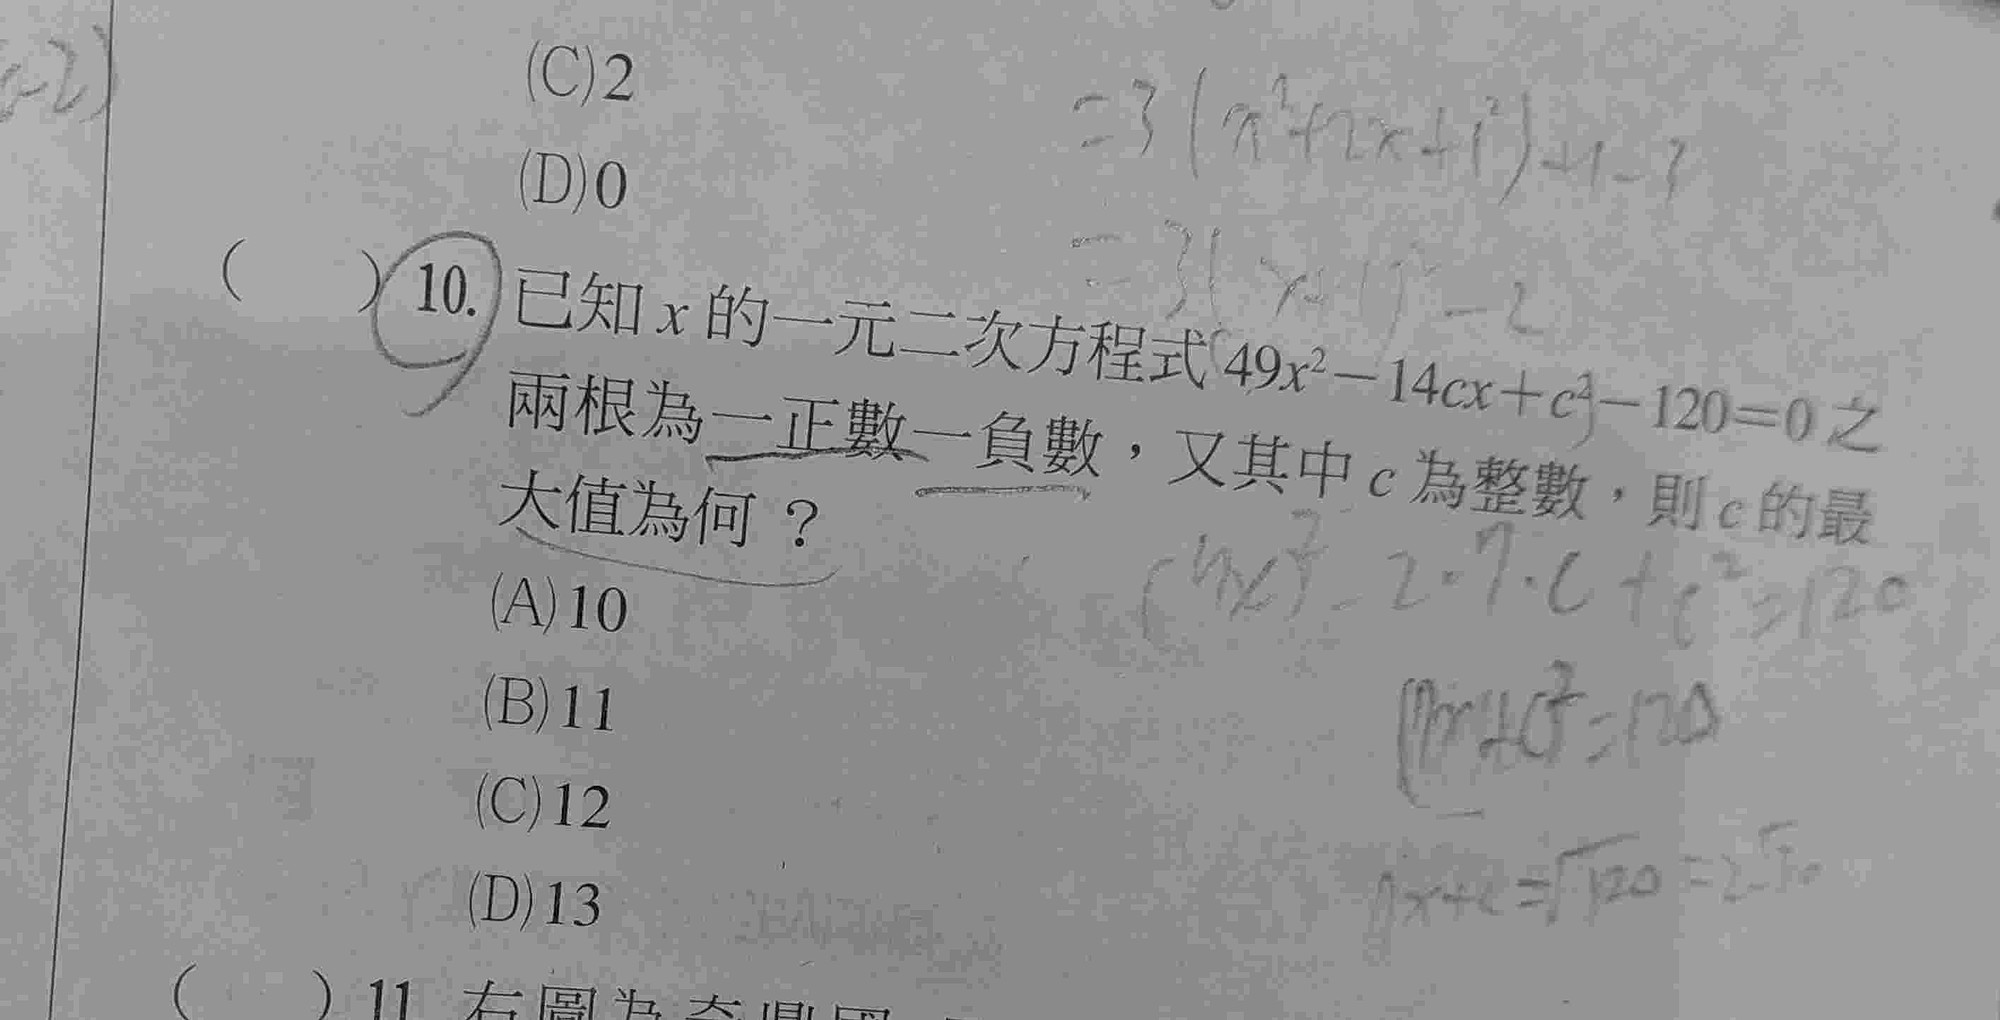 -2)
(C)2
=3(x²+2x+1²)+1-3
(D)0
=3(x+1)²-2
(　　)10. 已知 x 的一元二次方程式 49x²－14cx＋c²－120＝0 之
兩根為一正數一負數，又其中 c 為整數，則 c 的最
大值為何？
(7x)²-2·7·c+c²=120
(A)10
(B)11
(C)12
(D)13
=√120=2√30
(　　)11
右圖為